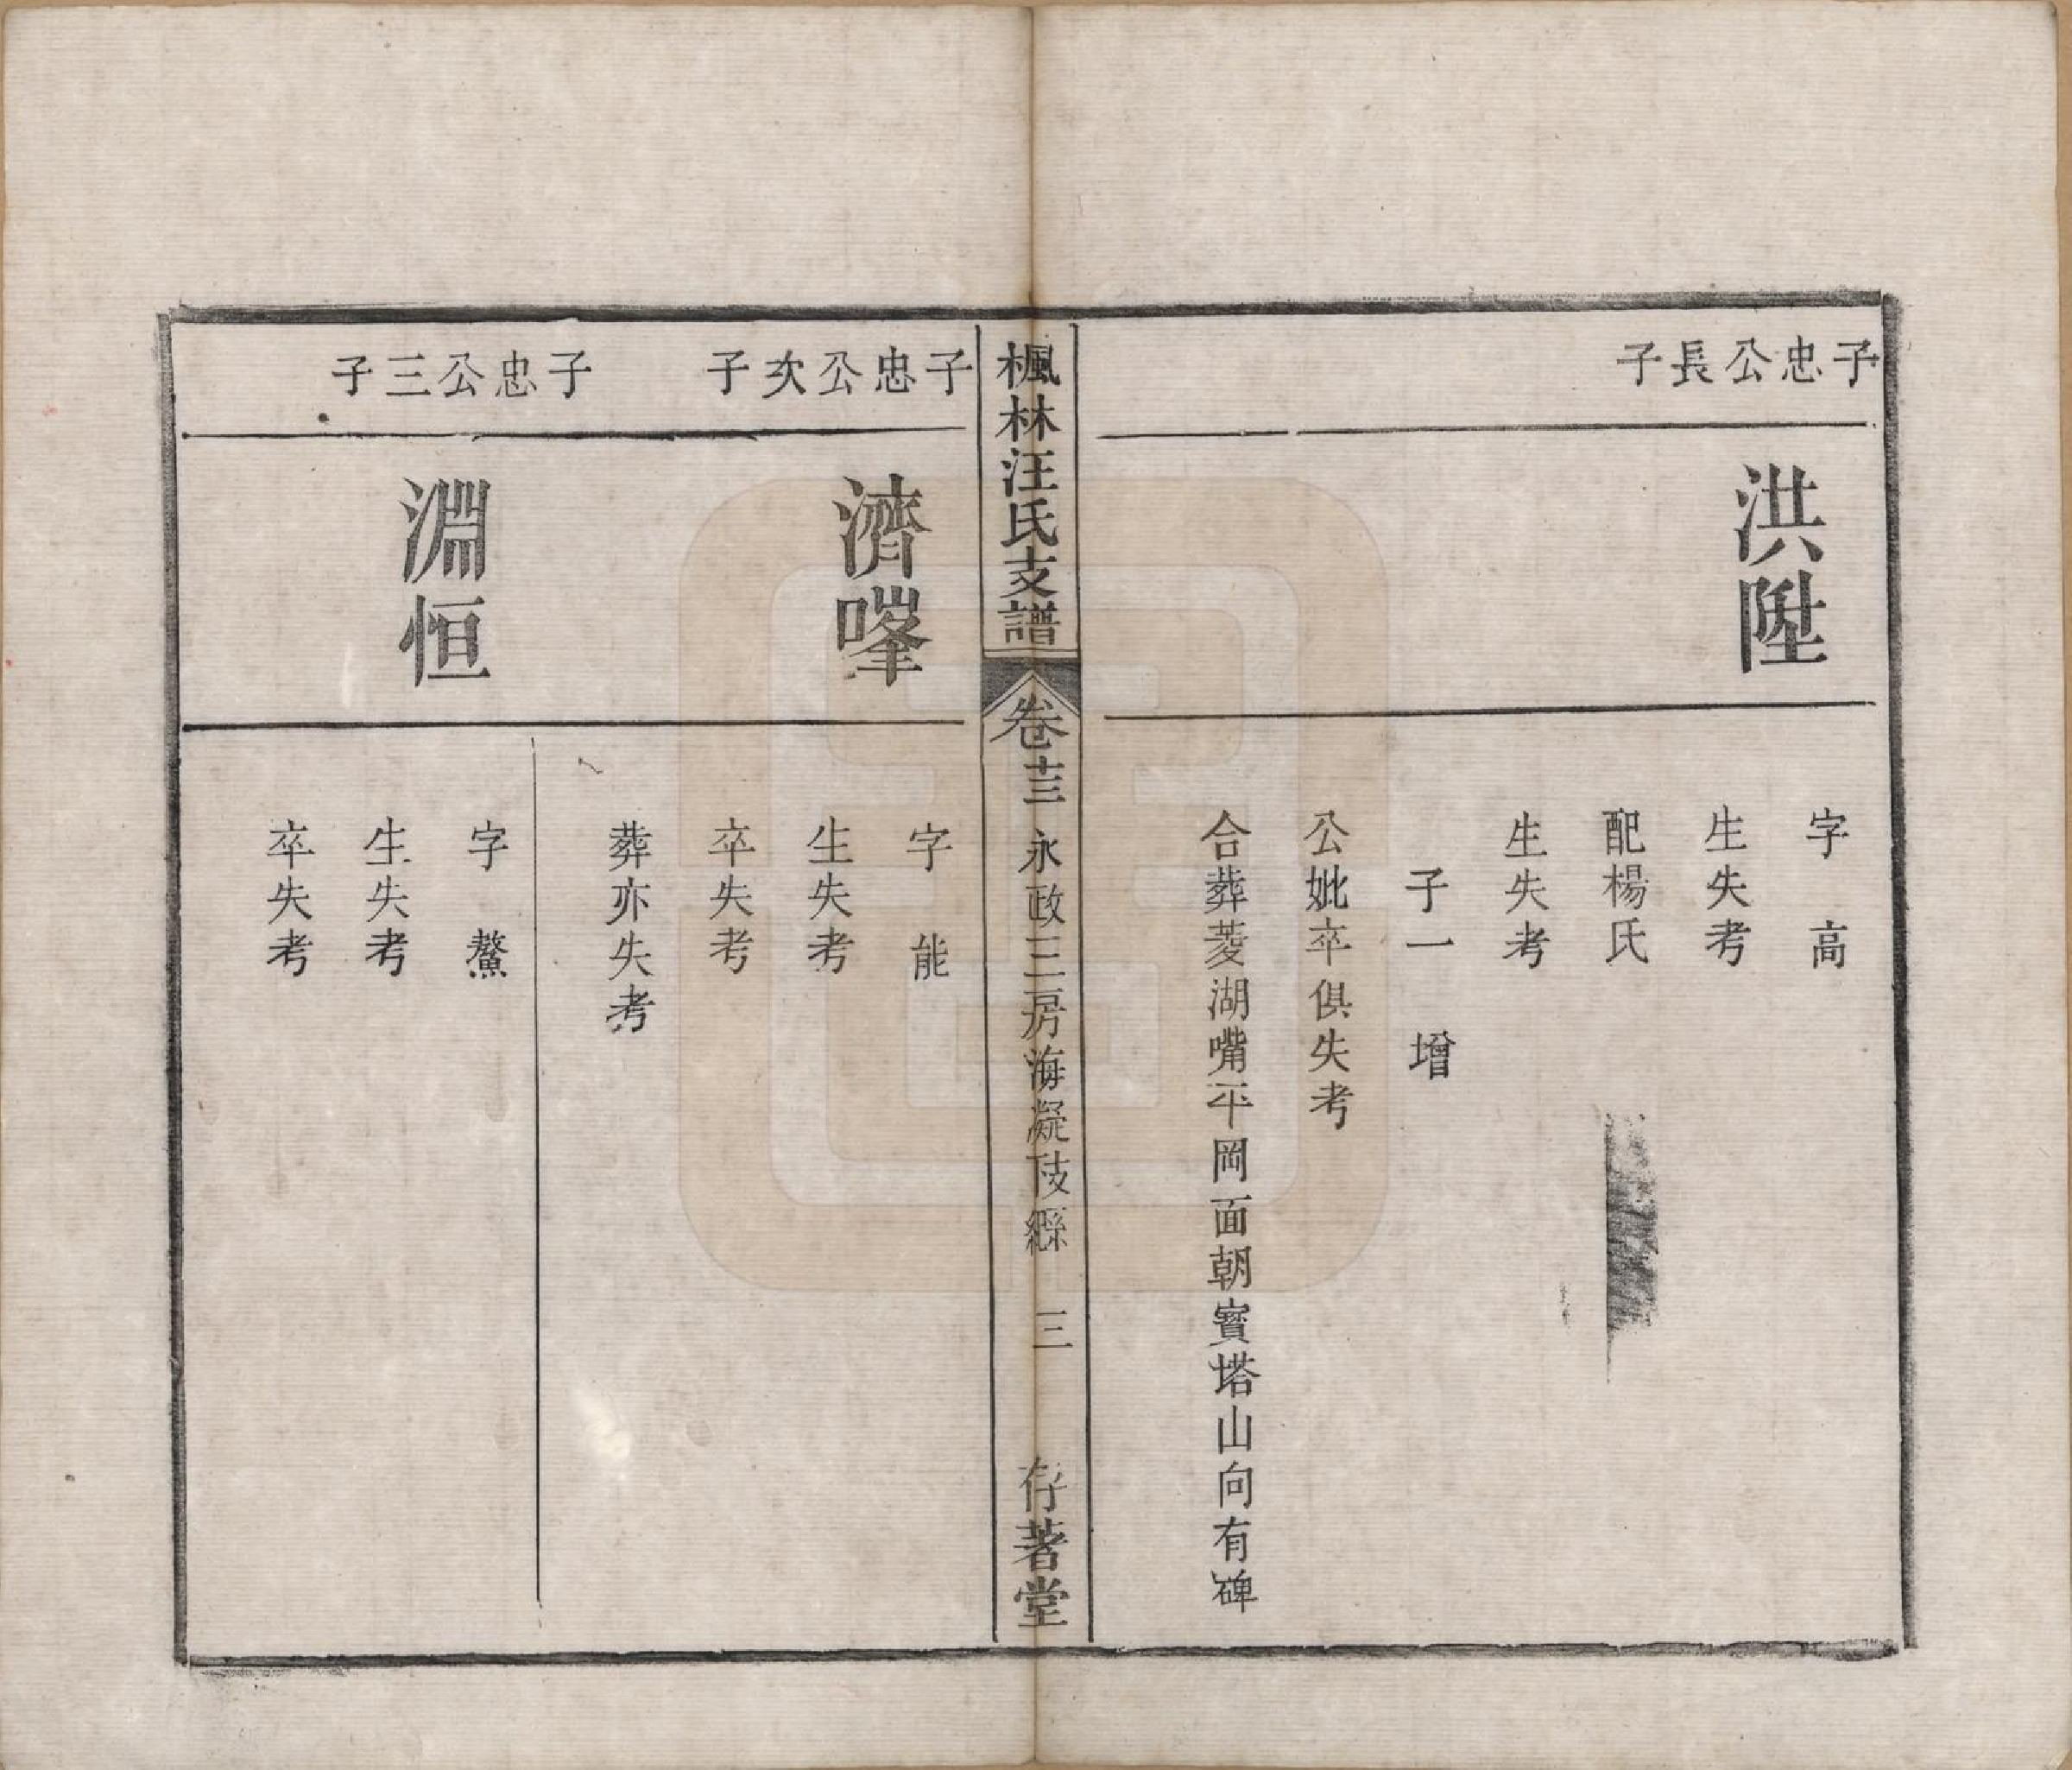 子忠公長子
洪陞
字 高
生失考
配楊氏
生失考
子一 增
公妣卒俱失考
合葬菱湖嘴平岡面朝寶塔山向有碑
楓林汪氏支譜 卷十三 永政三房海凝伎縣 三 存著堂
子忠公次子
濟嗺
字 能
生失考
卒失考
葬亦失考
子忠公三子
淵恒
字 鰲
生失考
卒失考